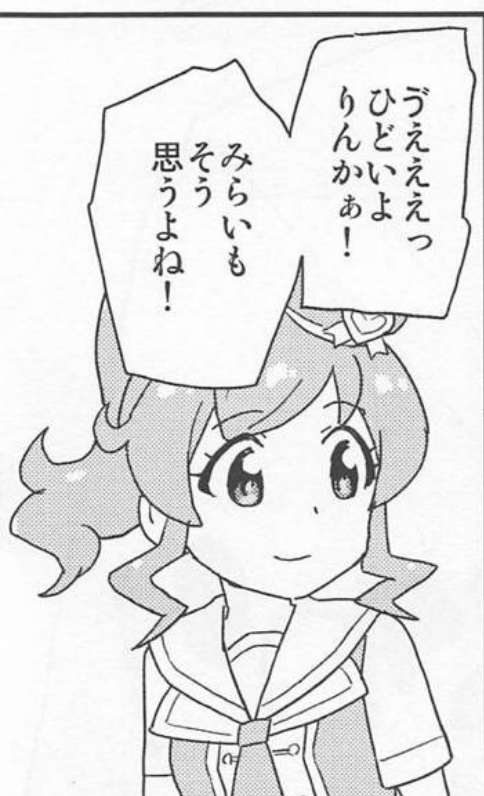 ゔえええっ
ひどいよ
りんかぁ！
みらいも
そう
思うよね！